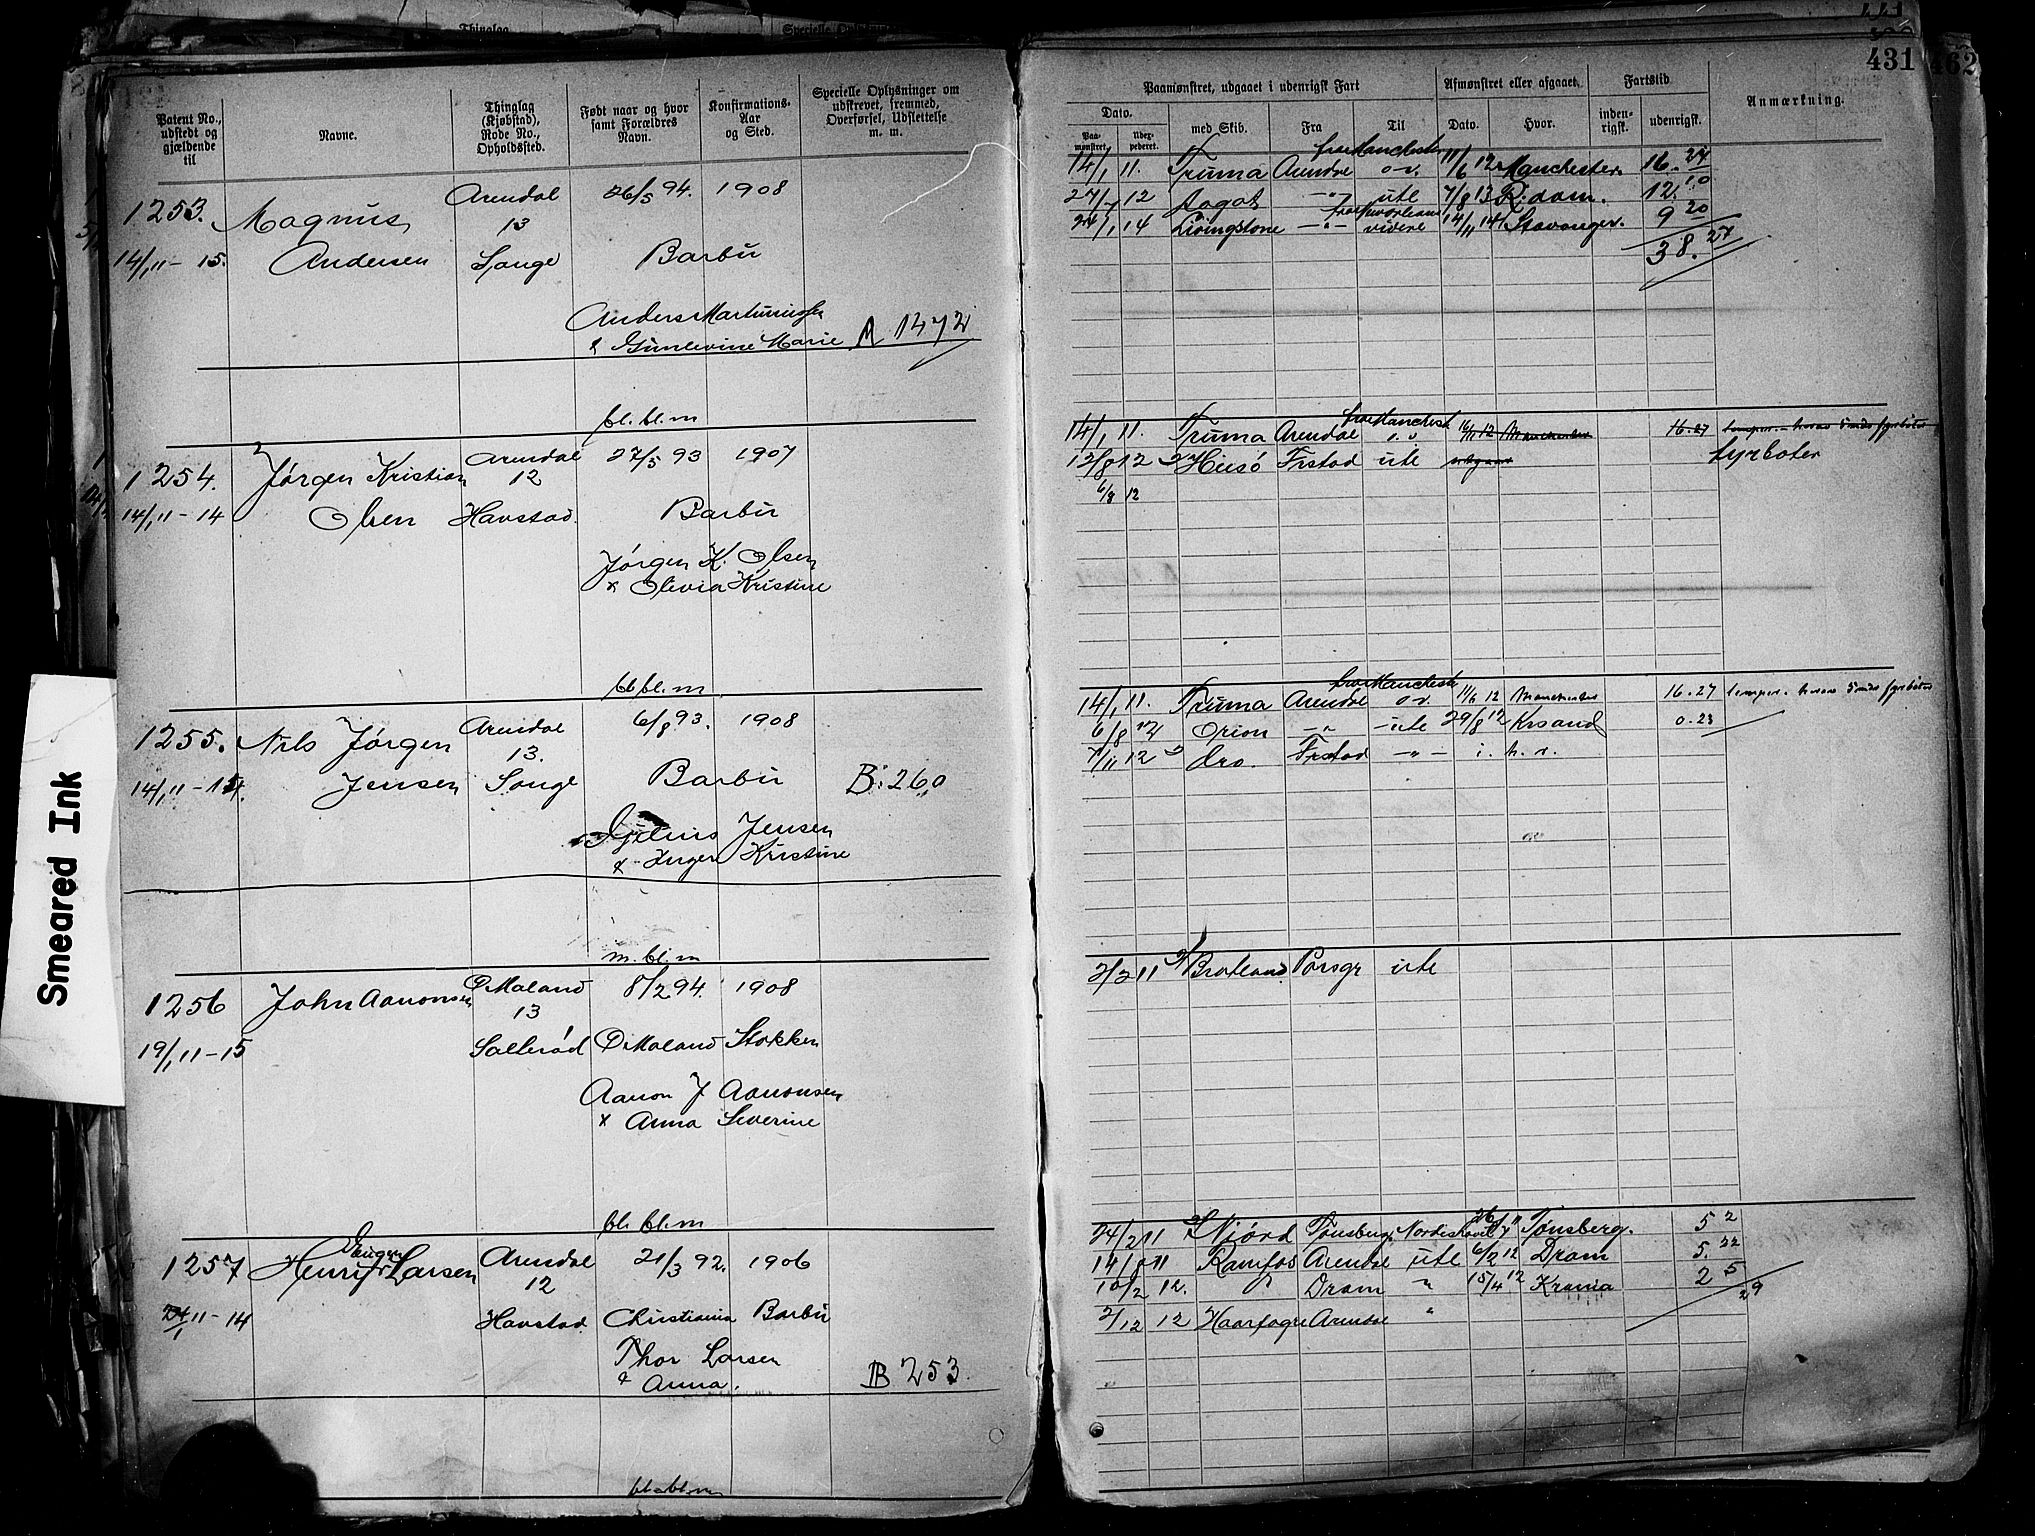 Thinglag
431
462
Patent No., udstedt og gjældende til
Navne.
Thinglag (Kjøbstad), Rode No., Opholdssted.
Født naar og hvor samt Forældres Navn.
Konfirmations-Aar og Sted.
Specielle Oplysninger om udskrevet, fremmed, Overførsel, Udslettelse m. m.
Paamønstret, udgaaet i udenrigsk Fart
Afmønstret eller afgaaet.
Fartstid
Anmærkning.
Dato.
Paa-mønstret.
Uder-pederet.
med Skib.
Fra
Til
Dato.
Hvor.
inden-rigsk.
udenrigsk.
1253.
Magnus
Andersen
14/1 11 - 15.
Arendal
13
Songe
26/5 94.
1908
Barbu
Anders
& Gunlevine Marie
A 1472
bl. bl. m
14/1 11. Truma Arendal fraManchester o v. 11/6 12 Manchester. 16. 27
12 Aagot -"- ute 7/8 13 R.dam. 12. 10
14 Livingstone -"- videre 14/11 14 Stavanger. 9 20
38. 27
1254.
Jørgen Kristian
Olsen
14/1 11 - 14
Arendal
12
Havstad.
27/5 93
1907
Barbu
Jørgen K. Olsen
x Olevia Kristine
bl bl. m
14/1 11. Truma Arendal fraManchest 12 Manchester 16.27
12/8 12 Hisø Frstad ute
6/8 12
fyrbøter
1255.
Nils Jørgen
Jensen
14/1 11 - 14.
Arendal
13.
Songe
6/8 93.
1908
Barbu
B: 260
Jensen
x Inger Kristine
m. bl. m
14/1 11. Truma Arendal fraManchest o v. 11/6 12 Manchester 16.27
6/8 12 Orion -"- ute 29/8 12 Krsand 0.23
7/11 12 dro. Frstad -"- i. h. v.
1256
John Aanonsen
19/1 11 - 15
Ø Moland
13
Salterød
8/2 94.
1908
Ø Moland
Stokken
Aanon J Aanonsen
x Anna Severine
bl. bl. m
2/2 11 Bratland Porsgr ute
1257
Eugen
Henrik Larsen
24/1 11 - 14
Arendal
12
Havstad
21/3 92.
1906
Christiania
Barbu
Thor Larsen
& Anna.
B 253.
bl. bl. m
24/2 11 Njörd Tønsberg. Tønsberg. 5 2
14/8 11 Ramfos Arendal ute 6/2 12 Dram 5. 22
10/2 12. Dram " 15/4 12 Krania 2 5
29
2/12 12 Haarfagre Arendal "
Smeared Ink